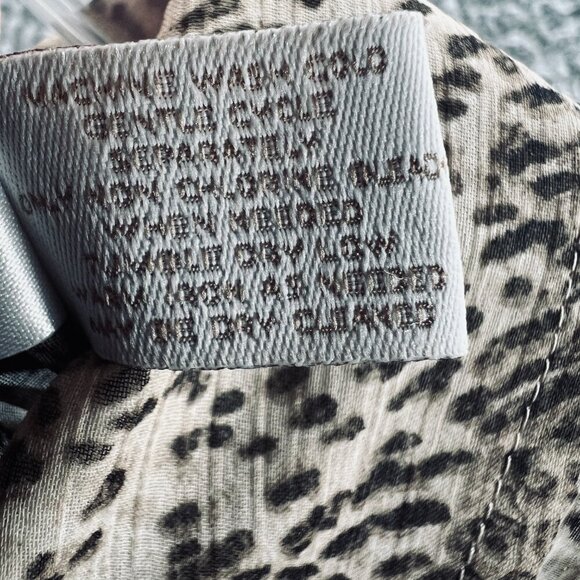 MACHINE WASH COLD
GENTLE CYCLE
SEPARATELY
ONLY NON-CHLORINE BLEACH
WHEN NEEDED
TUMBLE DRY LOW
WARM IRON AS NEEDED
MAY BE DRY CLEANED